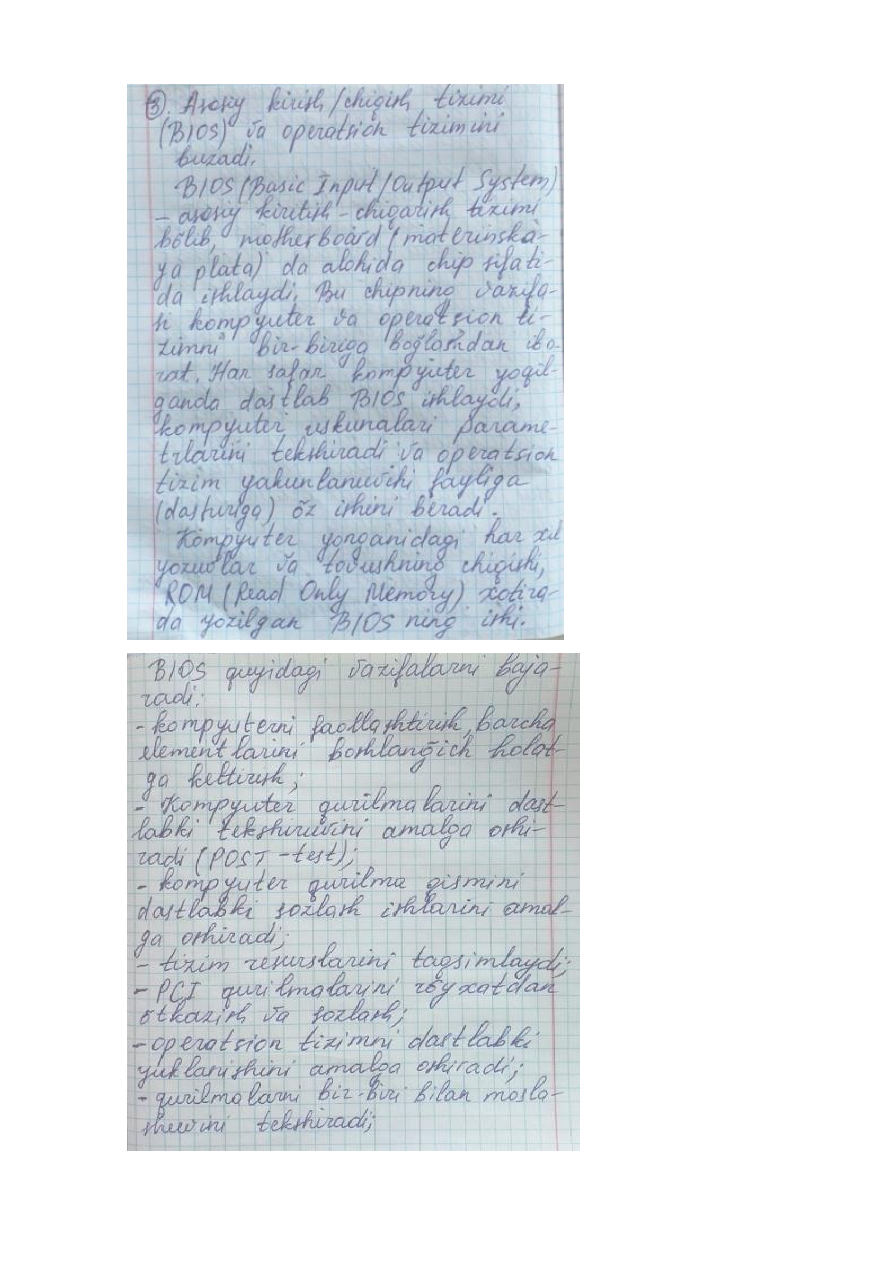 ③. Asosiy kirish/chiqish tizimi
(BIOS) va operatsion tizimini
buzadi.
BIOS (Basic Input/Output System)
– asosiy kiritish – chiqarish tizimi
bõlib, motherboard (materinska-
ya plata) da alohida chip sifati-
da ishlaydi. Bu chipning vazifa-
si kompyuter va operatsion ti-
zimni bir-biriga boğlashdan ibo-
rat. Har safar kompyuter yoqil-
ganda dastlab BIOS ishlaydi,
kompyuter uskunalari parame-
trlarini tekshiradi va operatsion
tizim yakunlanuvchi fayliga
(dasturiga) õz ishini beradi.
Kompyuter yonganidagi har xil
yozuvlar va tovushning chiqishi,
ROM (Read Only Memory) xotira-
da yozilgan BIOS ning ishi.
BIOS quyidagi vazifalarni baja-
radi:
- kompyuterni faollashtirish, barcha
elementlarini boshlanğich holat-
ga keltirish;
- Kompyuter qurilmalarini dast-
labki tekshiruvini amalga oshi-
radi (POST - test);
- kompyuter qurilma qismini
dastlabki sozlash ishlarini amal-
ga oshiradi;
- tizim resurslarini taqsimlaydi;
- PCI qurilmalarini rõyxatdan
õtkazish va sozlash;
- operatsion tizimni dastlabki
yuklanishini amalga oshiradi;
- qurilmalarni bir-biri bilan mosla-
shuvini tekshiradi;